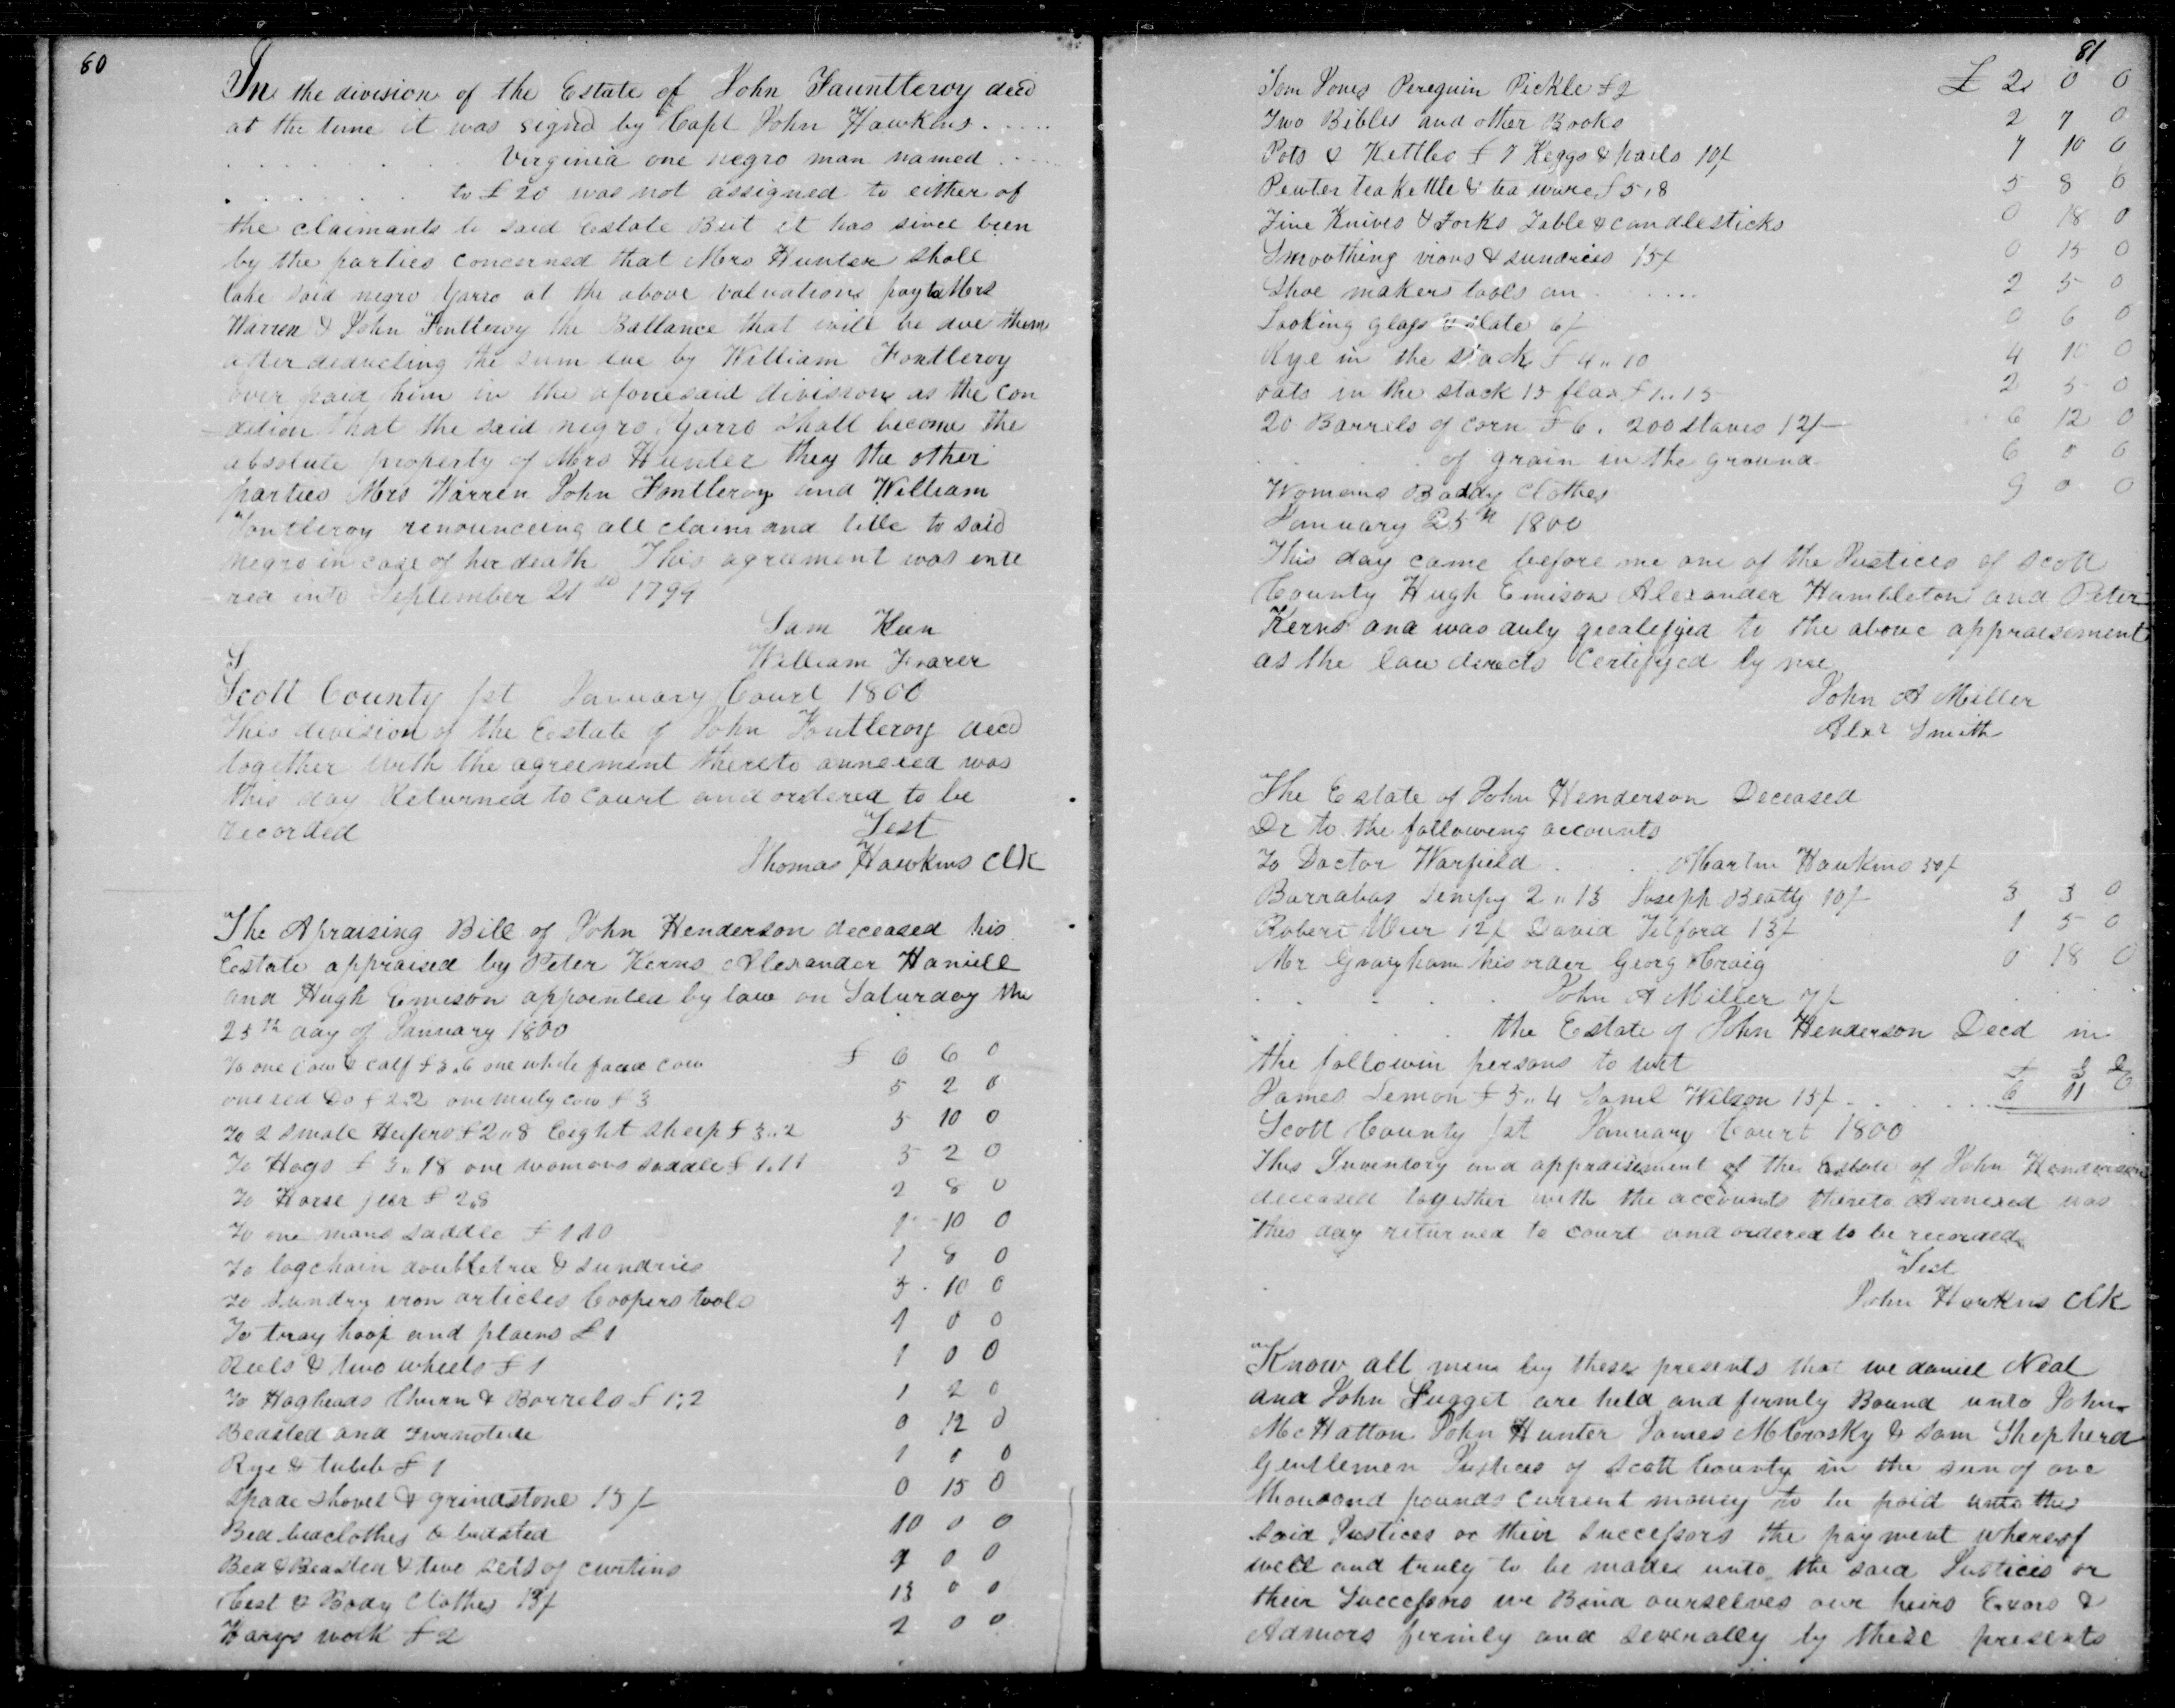 80
In the division of the Estate of John Fauntleroy decd
at the time it was signd by Capt John Hawkins . . . . .
. . . . . . . Virginia one negro man named . . . .
. . . . . . to £ 20 was not assigned to either of
the claimants to said Estate But it has since been
by the parties concerned that Mrs Hunter shall
take said negro Yarro at the above valuation pay to Mrs
Warren & John Fontleroy the Ballance that will be due them
after deducting the sum due by William Fontleroy
over paid him in the aforesaid division as the con
dition that the said negro Yarro shall become the
absolute property of Mrs Hunter they the other
parties Mrs Warren John Fontleroy and William
Fontleroy renounceing all claim and title to said
negro in case of her death This agreement was ente
red into September 21st 1799
Sam Keen
William Frazer
S
Scott County Sst January Court 1800
This division of the Estate of John Fontleroy decd
together with the agreement thereto annexed was
this day Returned to court and ordered to be
recorded Test
Thomas Hawkins Clk
The Apraising Bill of John Henderson deceased his
Estate appraised by Peter Kerns Alexander Hamill
and Hugh Emison appointed by law on Saturday the
25th day of January 1800
To one cow & calf £ 3.6 one white faced cow £ 6 6 0
one red Do £ 2.2 one muly cow £ 3 5 2 0
To 2 smale Heifers £ 2"8 Eight sheep £ 3..2 5 10 0
To Hogs £ 3"18 one womans saddle £ 1.11 5 2 0
To Horse jeer £ 2.8 2 8 0
To one mans saddle £ 1 10 1 10 0
To logchain doubletree & sundries 1 8 0
To sundry iron articles Coopers tools 3 10 0
To tray hoop and plains £ 1 1 0 0
Reels & two wheels £ 1 1 0 0
To Hogheads Churn & Barrels £ 1;2 1 2 0
Beadsted and Furnoture 0 12 0
Rye & tubb £ 1 1 0 0
Spade shovel & grindstone 15/ 0 15 0
Bed bedclothes & bedsted 10 0 0
Bed & Beadsted & two sets of curtins 9 0 0
Chest & Body Clothes 13/ 13 0 0
work £ 2 2 0 0
81
Tom Jones Pereguin Pickle £ 2 £ 2 0 0
Two Bibles and other Books 2 7 0
Pots & Kettles £ 7 Keggs & pails 10/ 7 10 0
Pewter teakettle & tea ware £ 5,8 5 8 0
Fine Knives & Forks Table & candlesticks 0 18 0
Smoothing irons & sundries 15/ 0 15 0
Shoe makers tools an . . . . . 2 5 0
Looking glass & slate 6/ 0 6 0
Rye in the stack £ 4 .. 10 4 10 0
oats in the stack 15 flax £ 1..15 2 5 0
20 Barrels of corn £ 6. 200 staves 12/ 6 12 0
. . . . . of grain in the ground 6 0 0
Womans Boddy clothes 9 0 0
January 25th 1800
This day came before me one of the Justices of Scott
County Hugh Emison Alexander Hambleton and Peter
Kerns and was duly to the above appraisement
as the law directs Certifyed by me
John A Miller
Alexr Smith
The Estate of John Henderson Deceased
Dr to the following accounts
To Doctor Warfield . . . Martin Hawkins 50/
Barrabas 2 " 13 Joseph Beatty 10/ 3 3 0
Robert Weer 12/ David Telford 13/ 1 5 0
Mr his order Georg Craig 0 18 0
. . . . . John A Miller 7/ . . .
. . . . . the Estate of John Henderson Decd in
the followin persons to wit £ S D
James Lemon £ 5..4 Saml Wilson 15/ . . . . . . 6 11 0
Scott County Sst January Court 1800
This Inventory and appraisement of the Estate of John Henderson
deceased together with the accounts thereto Annexed was
this day returned to court and ordered to be recorded
Test
John Hawkns Clk
Know all men by these presents that we daniel Neal
and John Sugget are held and firmly Bound unto John
McHatton John Hunter James McCrosky & Sam Shepherd
Gentlemen Justices of Scott County in the sum of one
thousand pounds current money to be paid unto the
said Justices or their successors the payment whereof
well and truly to be made unto the said Justices or
their Successors we Bind ourselves our heirs Exors &
Admors firmly and severally by these presents